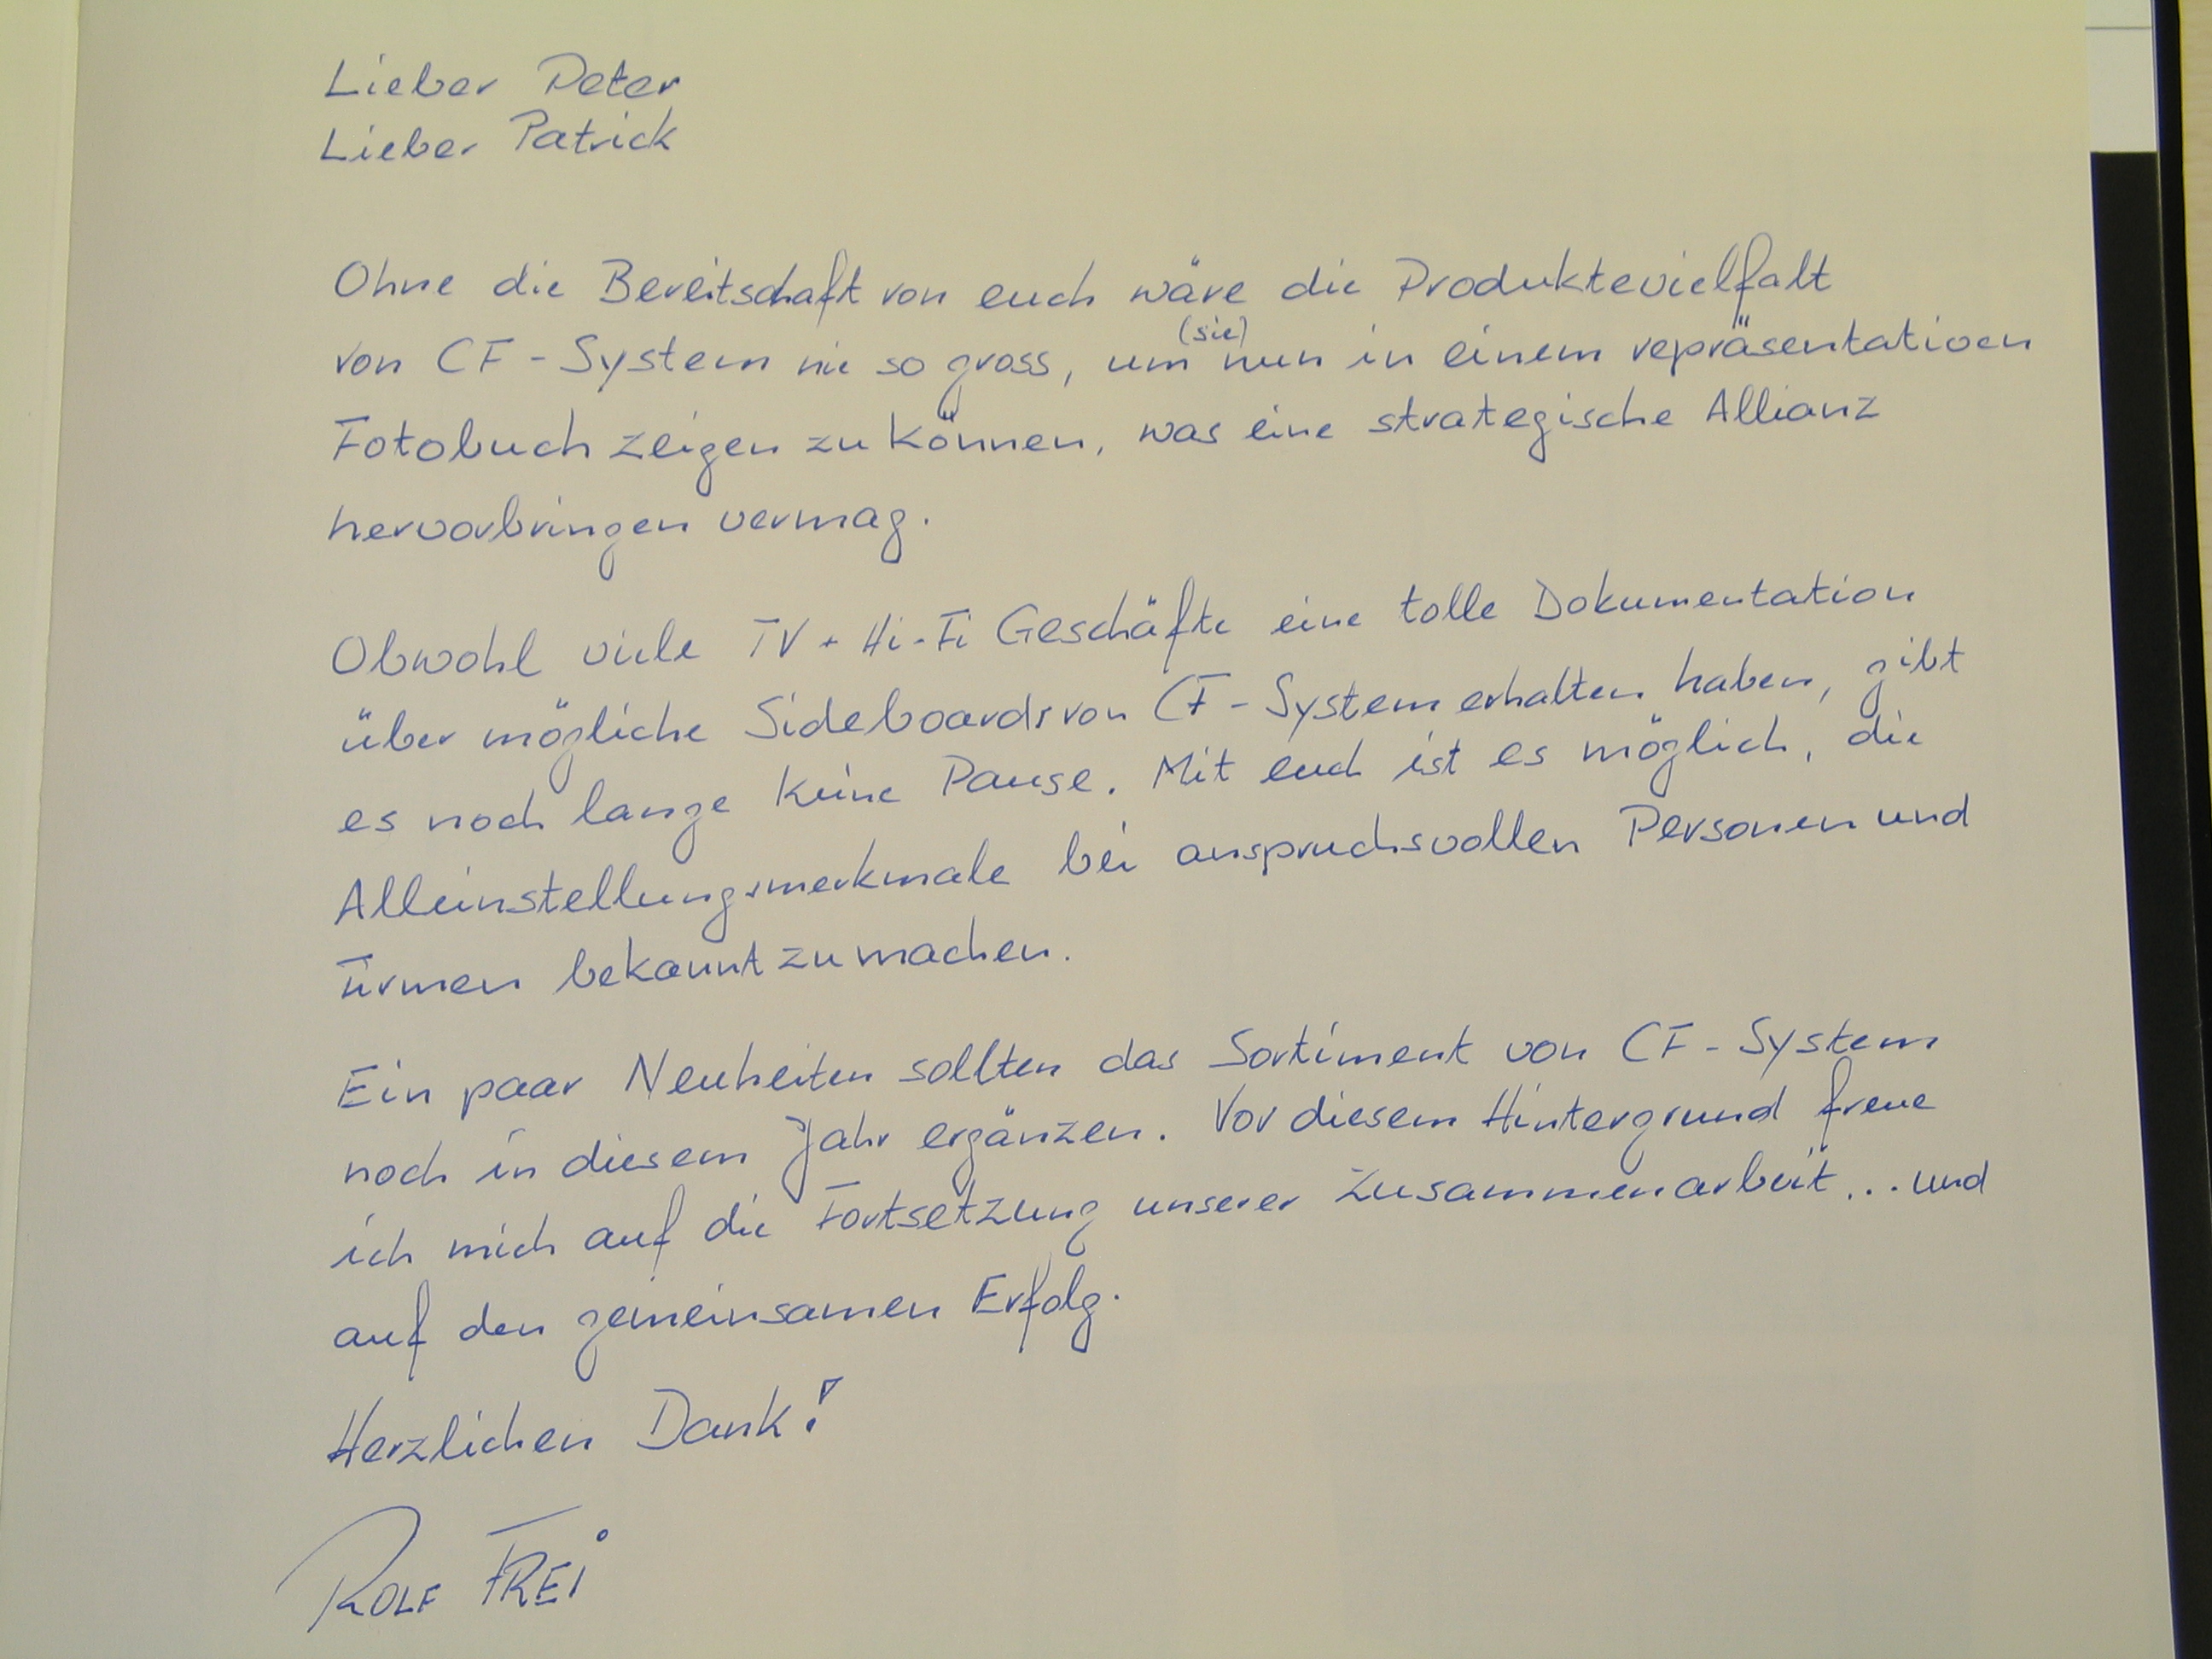 Lieber Peter
Lieber Patrick
Ohne die Bereitschaft von euch wäre die Produktevielfalt
von CF-System nie so gross, um (sie) nun in einem repräsentativen
Fotobuch zeigen zu können, was eine strategische Allianz
hervorbringen vermag.
Obwohl viele TV + Hi-Fi Geschäfte eine tolle Dokumentation
über mögliche Sideboards von CF-System erhalten haben, gibt
es noch lange keine Pause. Mit euch ist es möglich, die
Alleinstellungsmerkmale bei anspruchsvollen Personen und
Firmen bekannt zu machen.
Ein paar Neuheiten sollten das Sortiment von CF-System
noch in diesem Jahr ergänzen. Vor diesem Hintergrund freue
ich mich auf die Fortsetzung unserer Zusammenarbeit... und
auf den gemeinsamen Erfolg.
Herzlichen Dank!
ROLF FREI